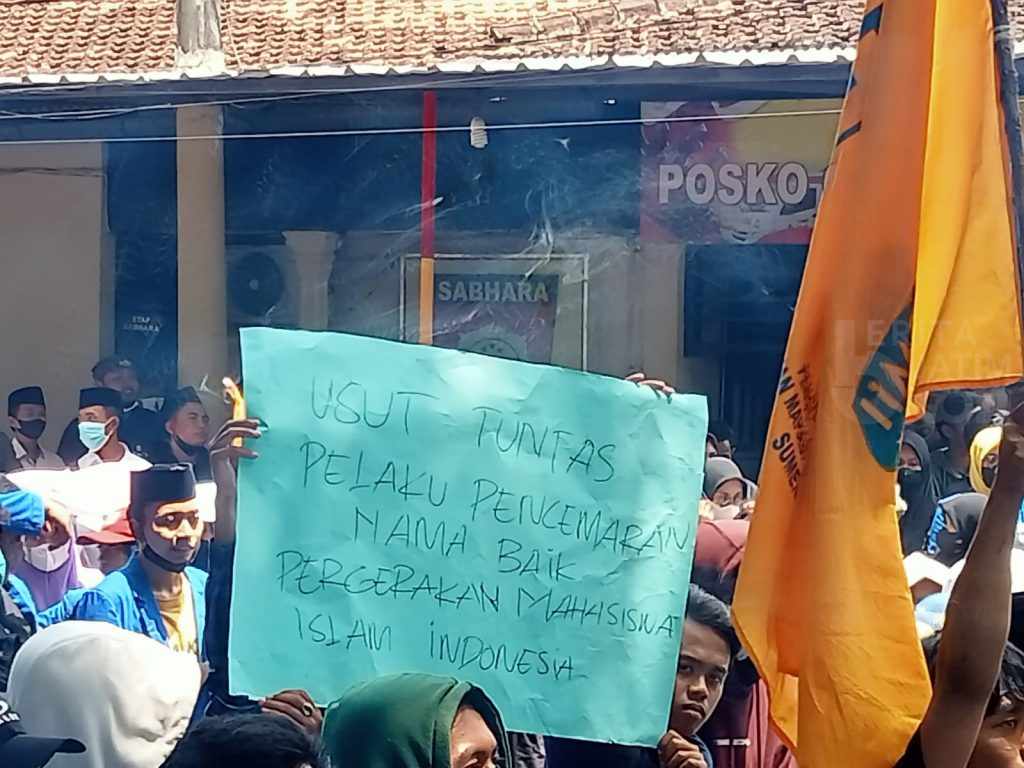 POSKO
SABHARA
STAF
SABHARA
USUT TUNTAS
PELAKU PENCEMARAN
NAMA BAIK
PERGERAKAN MAHASISWA
ISLAM INDONESIA
BERITA
JATIM